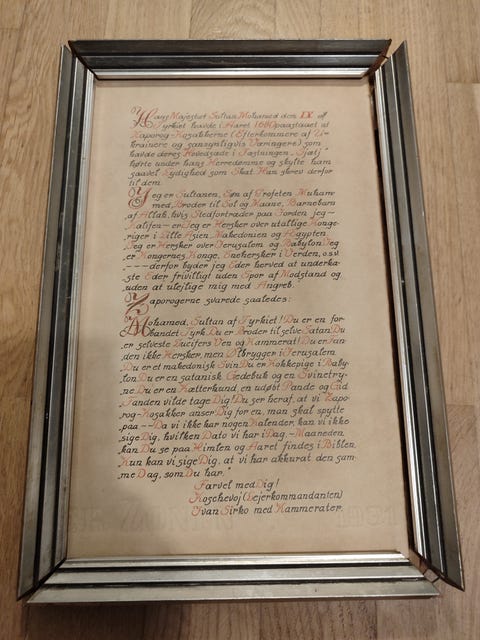 Hans Majestæt Sultan Mohamed den IX. af
Tyrkiet havde i Aaret 1680 paastaaet at
Zaporog-Kosakkerne (Efterkommere af U-
krainere og sansynligvis Væringere) som
havde deres Hovedsæde i Fæstningen "Sjetj"
hørte under hans Herredømme og skylte ham
saavel Lydighed som Skat. Han skrev derfor
til dem.
Jeg er Sultanen, Søn af Profeten Muham-
med, Broder til Sol og Maane, Barnebarn
af Allah, hvis Stedfortræder paa Jorden jeg -
Kalifen - er. Jeg er Hersker over utallige Konge-
riger i Lille Asien, Makedonien og Ægypten.
Jeg er Hersker over Jerusalem og Babylon. Jeg
er Kongernes Konge, Enehersker i Verden, o.s.v.
---- derfor byder jeg Eder herved at underka-
ste Eder frivilligt uden Spor af Modstand og
uden at ulejlige mig med Angreb."
Zaporogerne svarede saaledes:
Mohamed, Sultan af Tyrkiet! Du er en for-
bandet Tyrk. Du er Broder til selve Satan. Du
er selveste Lucifers Ven og Kammerat! Du er Fan-
den ikke Hersker, men Ølbrygger i Jerusalem
Du er et makedonisk Svin. Du er Kokkepige i Baby-
lon. Du er en satanisk Gedebuk og en Svinetry-
ne. Du er en Kætterhund, en udøbt Pande og End
Fanden vilde tage Dig! Du ser heraf, at vi Zapo-
rog-Kosakker anser Dig for en, man skal spytte
paa --- Da vi ikke har nogen Kalender, kan vi ikke
sige Dig, hvilken Dato vi har i Dag, - Maaneden
kan Du se paa Himlen og Aaret findes i Biblen.
Kun kan vi sige Dig, at vi har akkurat den sam-
me Dag, som Du har."
Farvel med Dig!
Koschevoj (Lejerkommandanten)
Ivan Sirko med Kammerater.